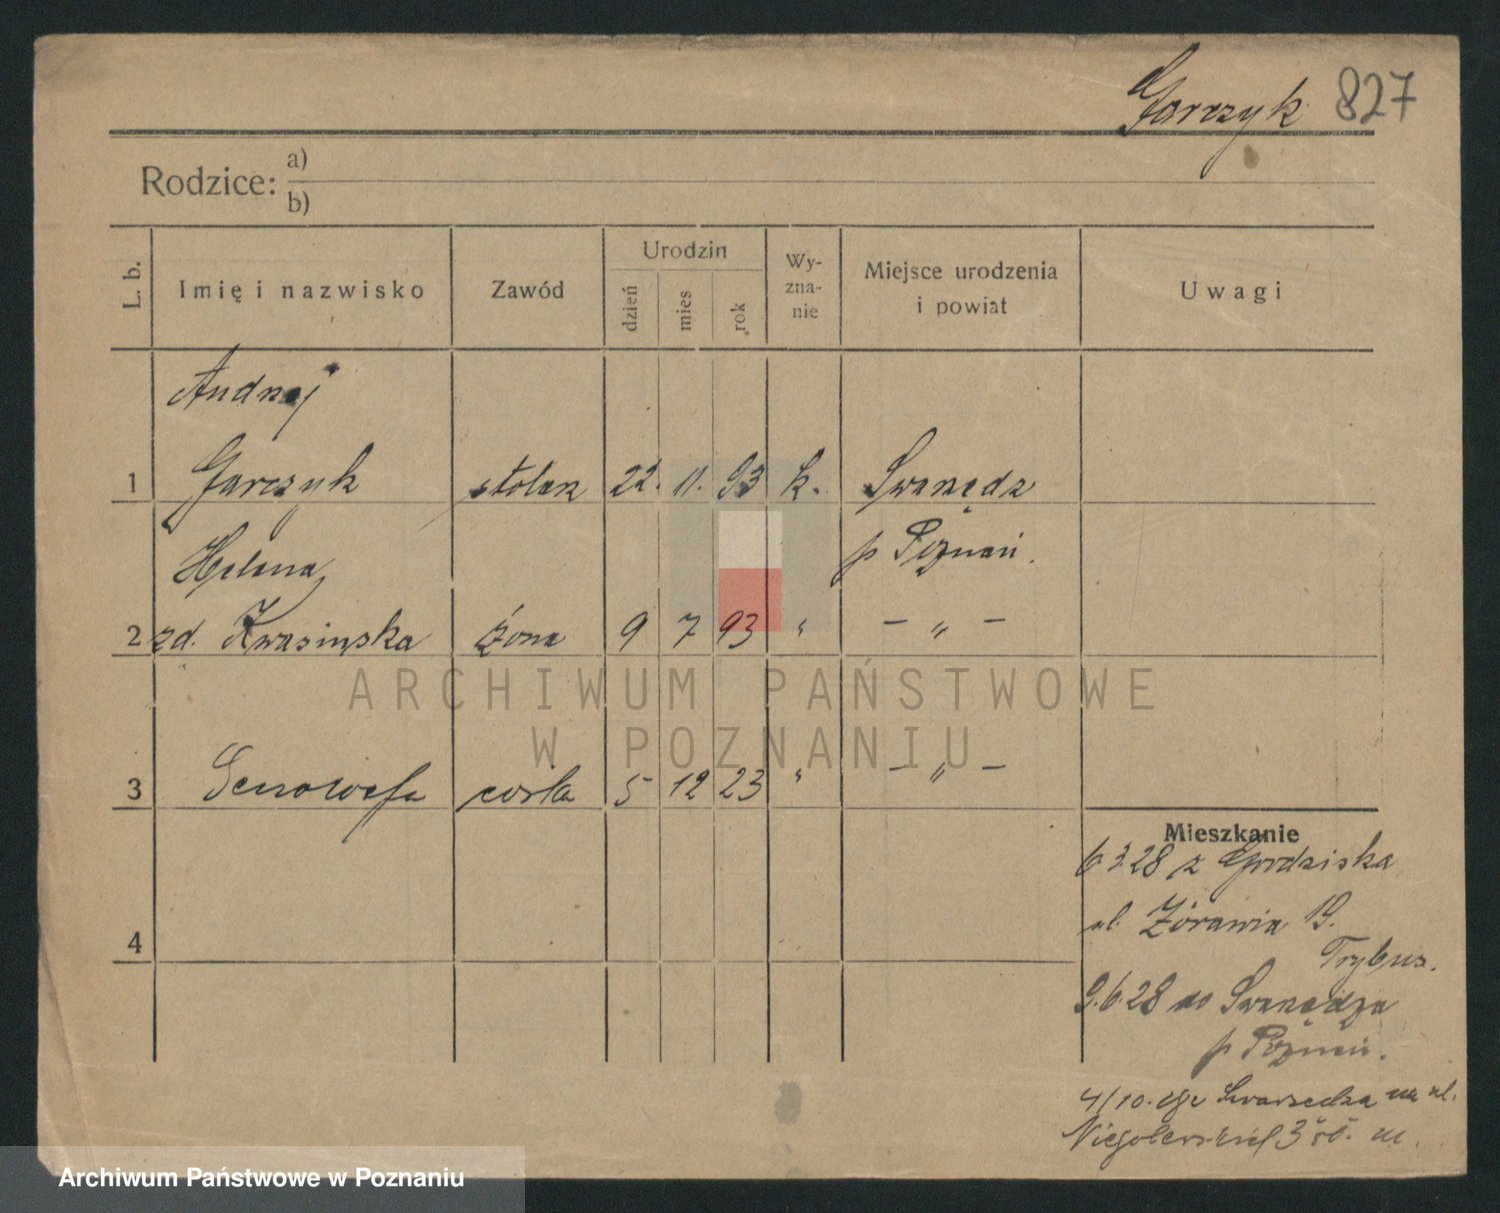 Garczyk 827
Rodzice: a)
b)
L. b.
Imię i nazwisko
Zawód
Urodzin
dzień
mies
rok
Wy-
zna-
nie
Miejsce urodzenia
i powiat
Uwagi
Andrzej
1 Garczyk stolarz 22. 11. 93 k. Swarzędz
Helena p Poznań.
2 zd. Kwasińska żona 9 7 93 " — " —
3 Genowefa córka 5 12 23 " — " —
4
Mieszkanie
6.3.28 z Grodziska
ul. Żórawia 19.
Trybus.
9.6.28 do Swarzędza
p Poznań.
4/10. Swarzędza na ul.
3
ARCHIWUM PAŃSTWOWE
W POZNANIU
Archiwum Państwowe w Poznaniu